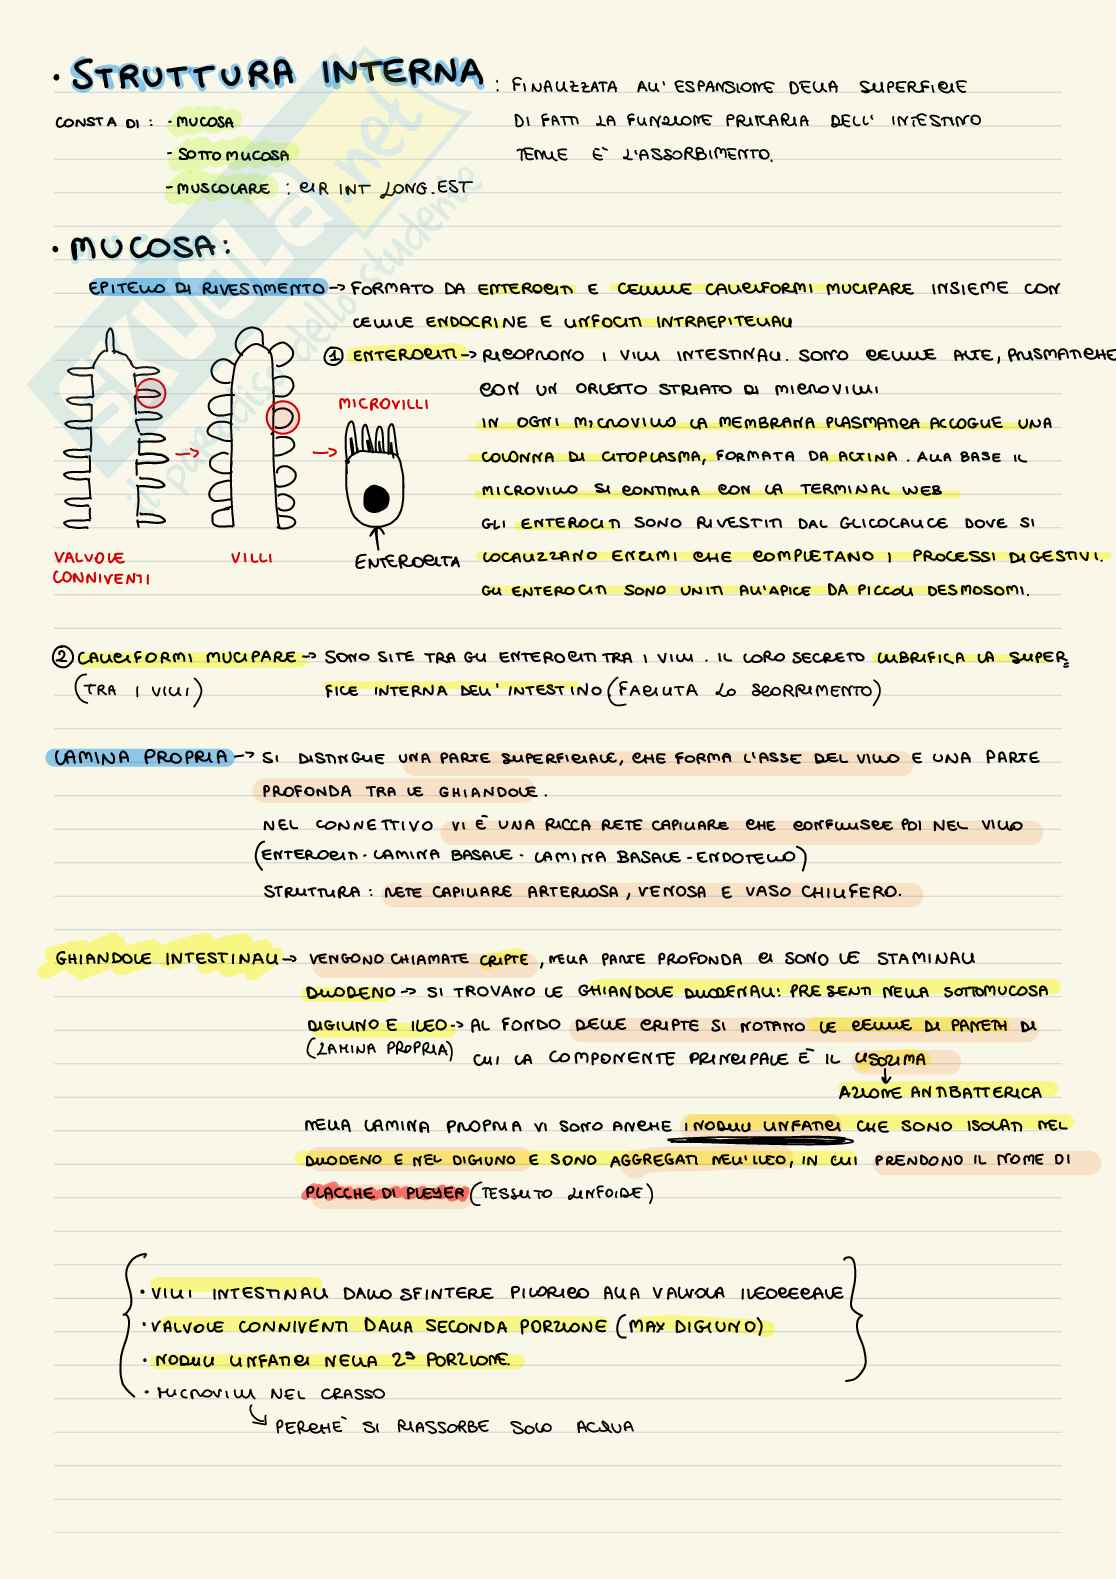 · STRUTTURA INTERNA : FINALIZZATA ALL'ESPANSIONE DELLA SUPERFICIE
CONSTA DI : - MUCOSA DI FATTI LA FUNZIONE PRIMARIA DELL'INTESTINO
- SOTTOMUCOSA TENUE È L'ASSORBIMENTO.
- MUSCOLARE : CIR INT LONG. EST
· MUCOSA:
EPITELIO DI RIVESTIMENTO → FORMATO DA ENTEROCITI E CELLULE CALICIFORMI MUCIPARE INSIEME CON
CELLULE ENDOCRINE E LINFOCITI INTRAEPITELIALI
① ENTEROCITI → RICOPRONO I VILLI INTESTINALI. SONO CELLULE ALTE, PRISMATICHE
CON UN ORLETTO STRIATO DI MICROVILLI
IN OGNI MICROVILLO LA MEMBRANA PLASMATICA ACCOGLIE UNA
COLONNA DI CITOPLASMA, FORMATA DA ACTINA. ALLA BASE IL
MICROVILLO SI CONTINUA CON LA TERMINAL WEB
GLI ENTEROCITI SONO RIVESTITI DAL GLICOCALICE DOVE SI
LOCALIZZANO ENZIMI CHE COMPLETANO I PROCESSI DIGESTIVI.
GLI ENTEROCITI SONO UNITI ALL'APICE DA PICCOLI DESMOSOMI.
MICROVILLI
ENTEROCITA
VALVOLE CONNIVENTI
VILLI
② CALICIFORMI MUCIPARE → SONO SITE TRA GLI ENTEROCITI TRA I VILLI. IL LORO SECRETO LUBRIFICA LA SUPER=
(TRA I VILLI) FICE INTERNA DELL'INTESTINO (FACILITA LO SCORRIMENTO)
LAMINA PROPRIA → SI DISTINGUE UNA PARTE SUPERFICIALE, CHE FORMA L'ASSE DEL VILLO E UNA PARTE
PROFONDA TRA LE GHIANDOLE.
NEL CONNETTIVO VI È UNA RICCA RETE CAPILLARE CHE CONFLUISCE POI NEL VILLO
(ENTEROCITI - LAMINA BASALE - LAMINA BASALE - ENDOTELIO)
STRUTTURA : RETE CAPILLARE ARTERIOSA, VENOSA E VASO CHILIFERO.
GHIANDOLE INTESTINALI → VENGONO CHIAMATE CRIPTE, NELLA PARTE PROFONDA CI SONO LE STAMINALI
DUODENO → SI TROVANO LE GHIANDOLE DUODENALI: PRESENTI NELLA SOTTOMUCOSA
DIGIUNO E ILEO → AL FONDO DELLE CRIPTE SI NOTANO LE CELLULE DI PANETH DI
(LAMINA PROPRIA) CUI LA COMPONENTE PRINCIPALE È IL LISOZIMA
↓
AZIONE ANTIBATTERICA
NELLA LAMINA PROPRIA VI SONO ANCHE I NODULI LINFATICI CHE SONO ISOLATI NEL
DUODENO E NEL DIGIUNO E SONO AGGREGATI NELL'ILEO, IN CUI PRENDONO IL NOME DI
PLACCHE DI PLEYER (TESSUTO LINFOIDE)
· VILLI INTESTINALI DALLO SFINTERE PILORICO ALLA VALVOLA ILEOCECALE
· VALVOLE CONNIVENTI DALLA SECONDA PORZIONE (MAX DIGIUNO)
· NODULI LINFATICI NELLA 2ª PORZIONE.
· MICROVILLI NEL CRASSO
↳ PERCHÈ SI RIASSORBE SOLO ACQUA
SKUOLA.net
il paradiso dello studente